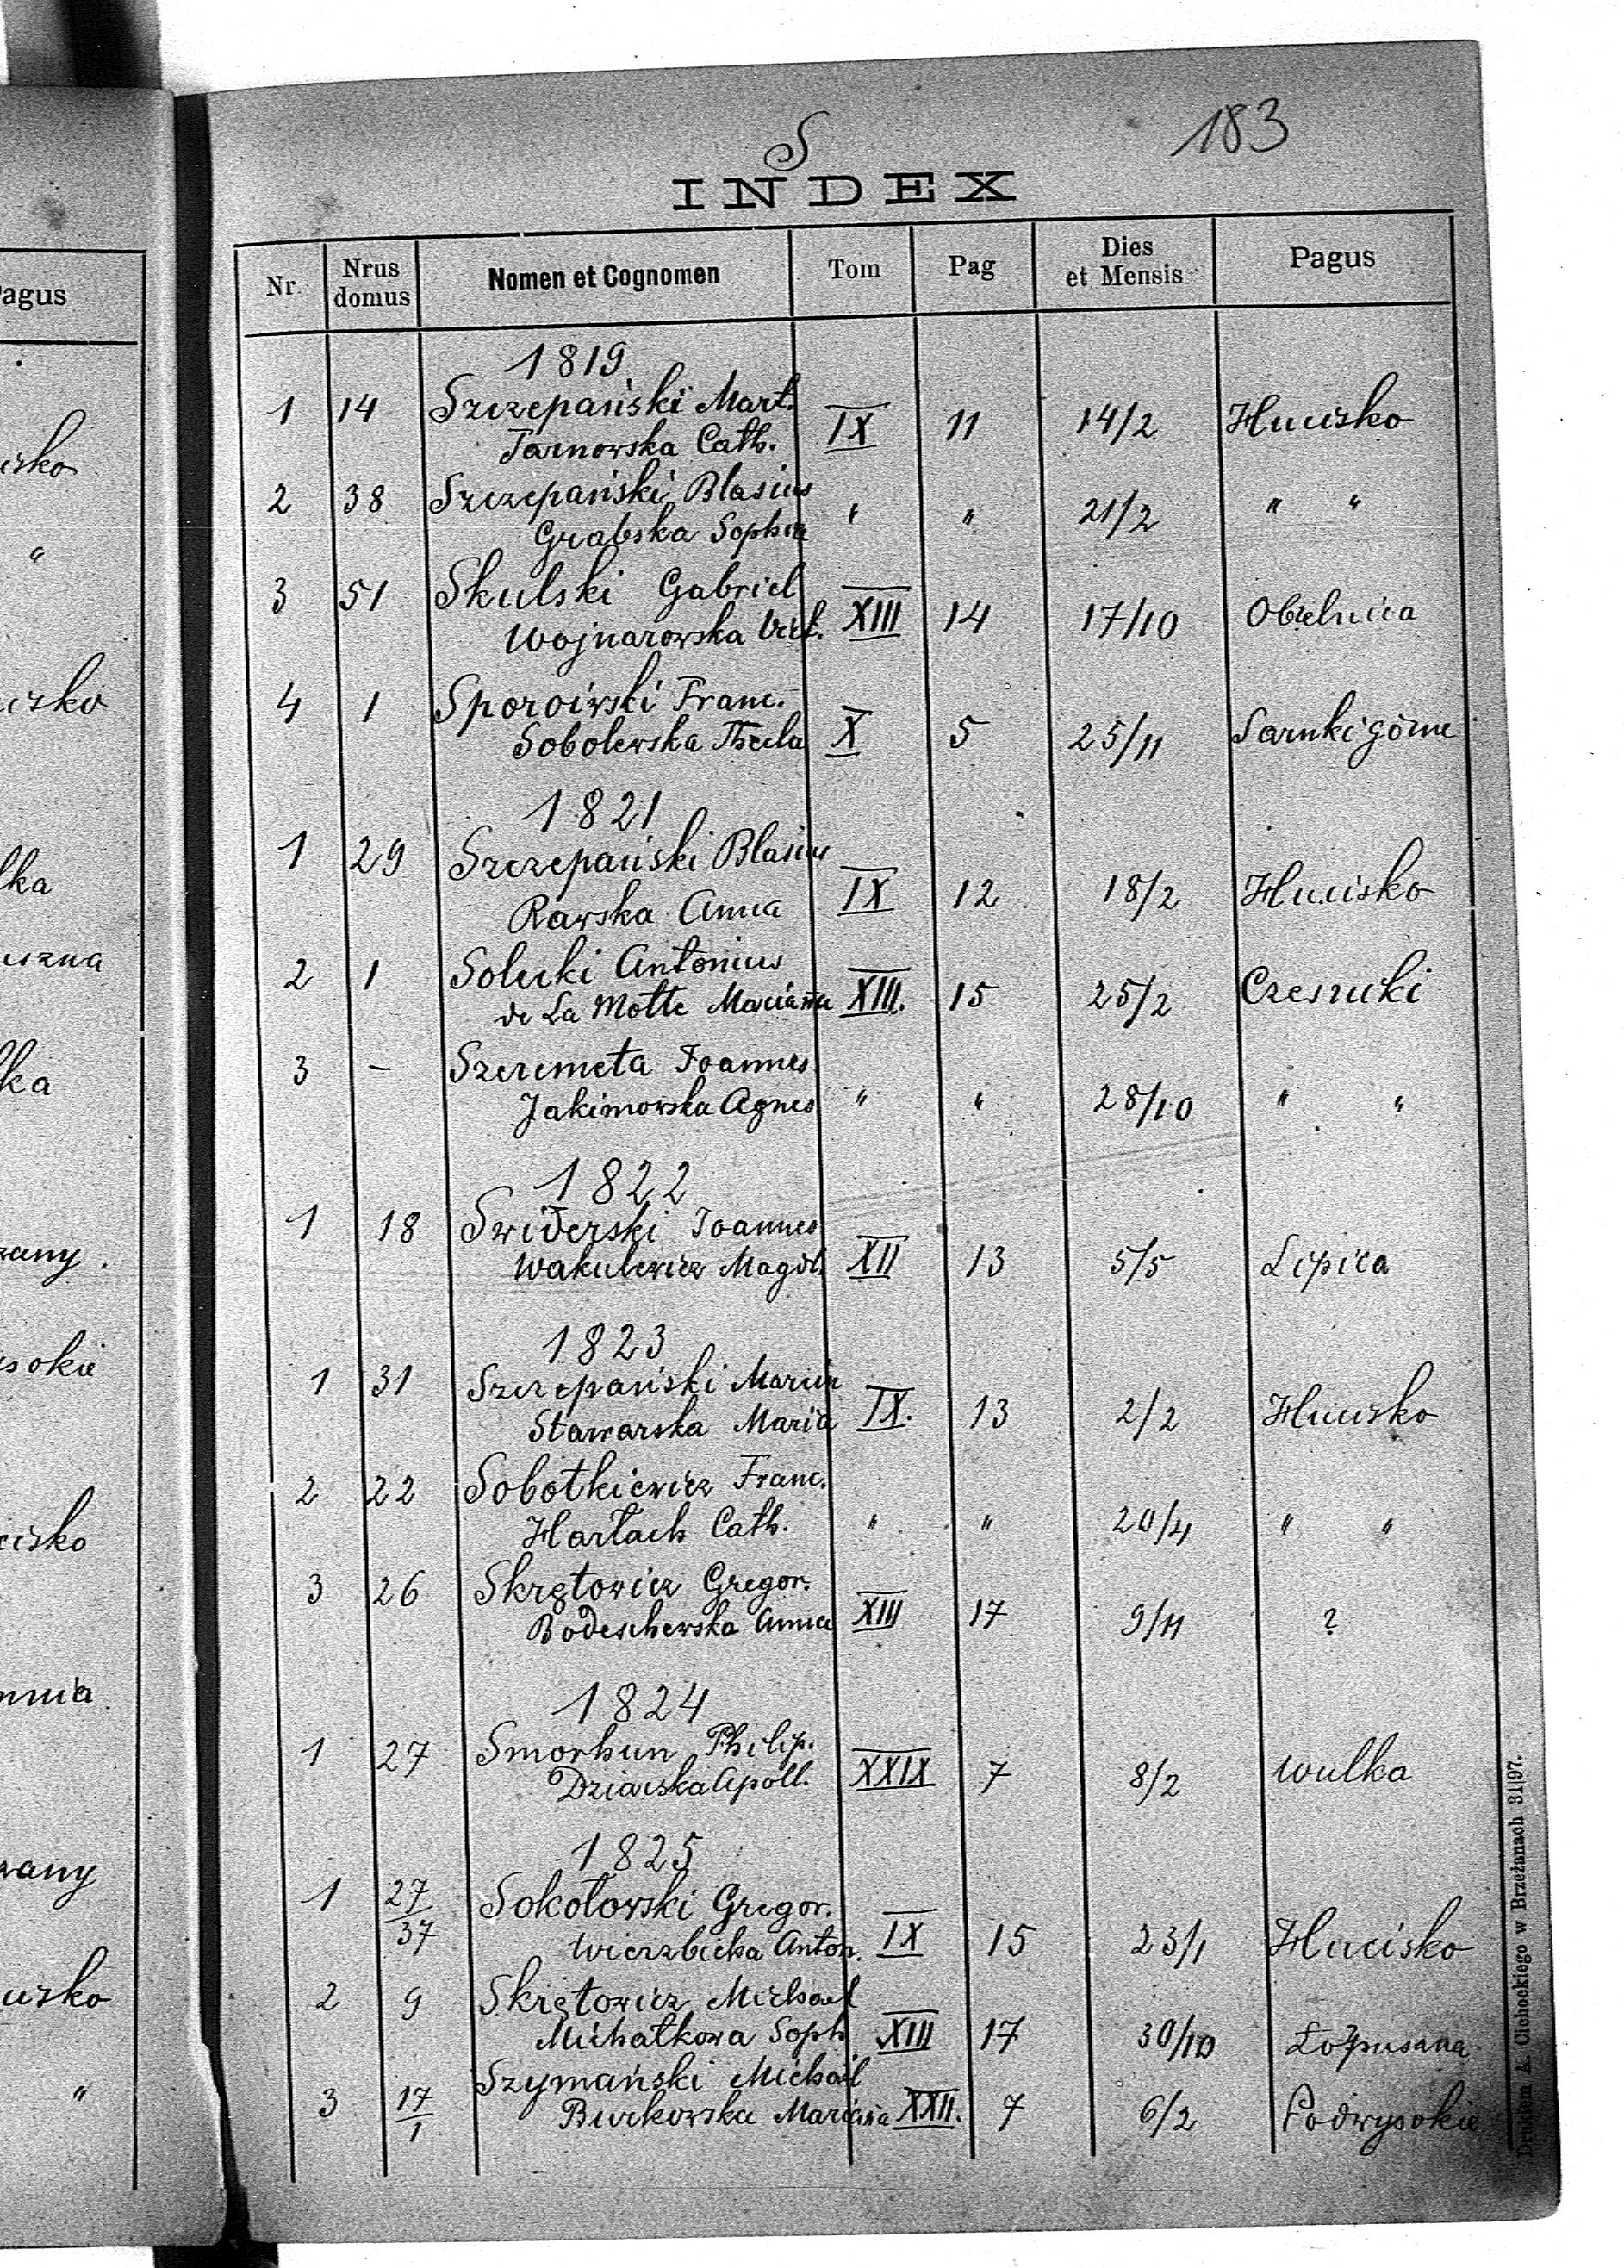 183
S
INDEX
Nr. Nrus domus Nomen et Cognomen Tom Pag Dies et Mensis Pagus
1819
1 14 Szczepański Mart. IX 11 14/2 Hucisko
Tarnowska Cath.
2 38 Szczepański Blasius " " 21/2 " "
Grabska Sophia
3 51 Skulski Gabriel XIII 14 17/10 Obelnica
Wojnarowska
4 1 Franc. X 5 25/11 Sarnki górne
Sobolewska Thecla
1821
1 29 Szczepański Blasius IX 12 18/2 Hucisko
Rawska Anna
2 1 Solecki Antonius XIII. 15 25/2 Czesniki
de La Motte Marianna
3 – Szeremeta Joannes " " 28/10 " "
Jakimowska Agnes
1822
1 18 Swiderski Joannes XII 13 5/5 Lipica
Wakulewicz Magdl.
1823
1 31 Szczepański Marcin IX. 13 2/2 Hucisko
Stawarska Maria
2 22 Sobotkiewicz Franc. " " 20/4 " "
Hartach Cath.
3 26 Skrętowicz Gregor. XIII 17 9/11 ?
Bodeschewska Anna
1824
1 27 Smorhun Philip. XXIX 7 8/2 Wulka
Apoll.
1825
1 27/37 Sokołowski Gregor. IX 15 23/1 Hucisko
Wierzbicka Anton.
2 9 Skrętowicz Michael XIII 17 30/10 Łopuszna
Michałkowa Soph.
3 17/1 Szymański Michael XXII. 7 6/2 Podwysokie
Burkowska Marianna
Drukiem A. Cichockiego w Brzeżanach 31|97.